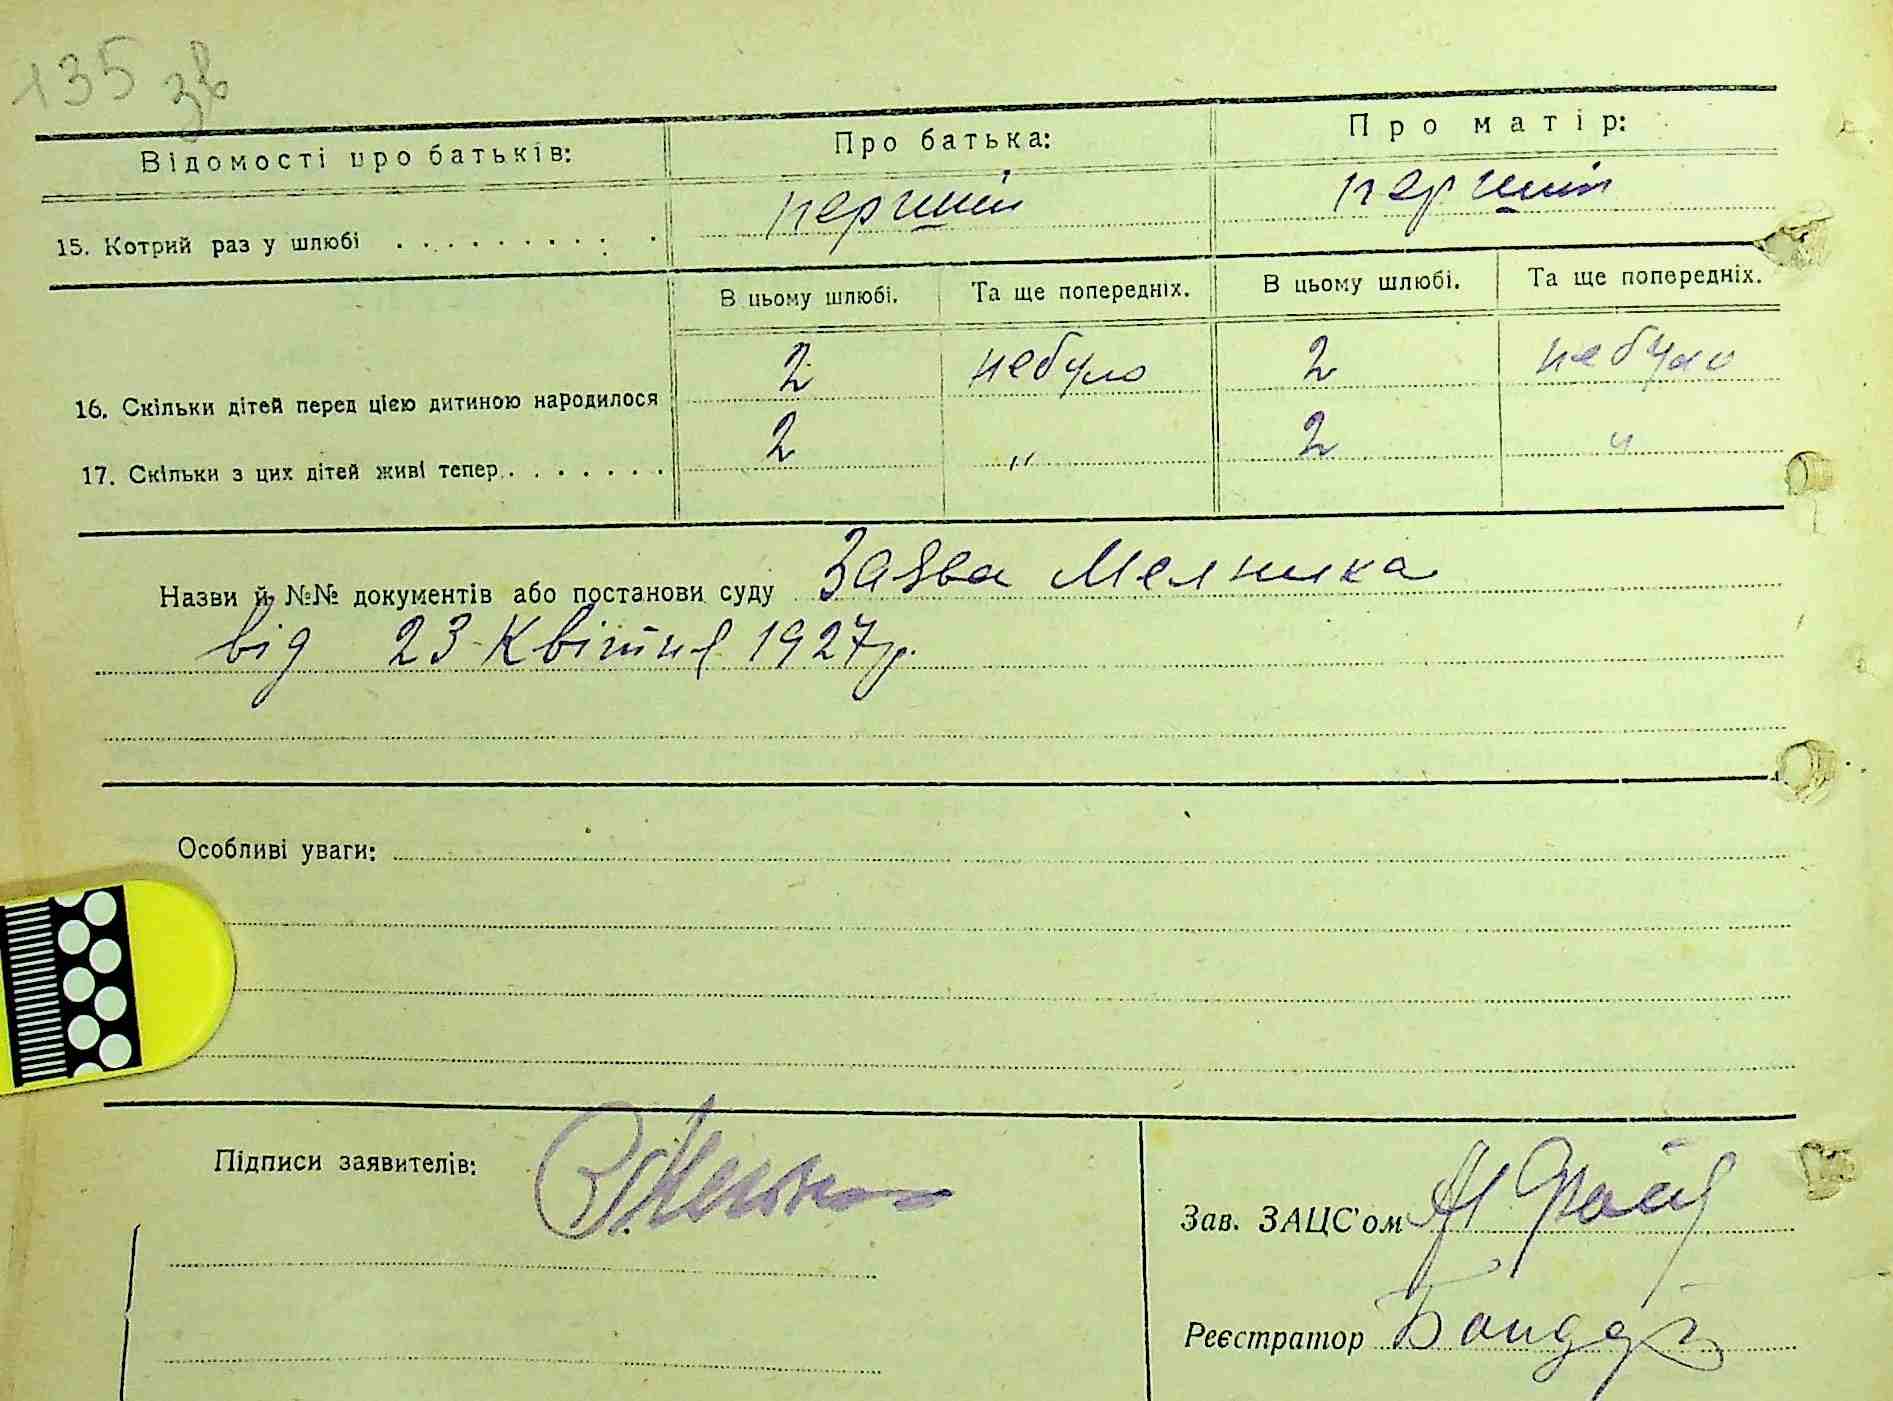 135 зв
Відомості про батьків: Про батька: Про матір:
15. Котрий раз у шлюбі . . . . . . . . . . перший перший
В цьому шлюбі. Та ще попередніх. В цьому шлюбі. Та ще попередніх.
16. Скільки дітей перед цією дитиною народилося 2 небуло 2 небуло
17. Скільки з цих дітей живі тепер . . . . . . . 2 „ 2 „
Назви й №№ документів або постанови суду Заява Мелника
від 23 Квітня 1927 р.
Особливі уваги:
Підписи заявителів:
Зав. ЗАЦС'ом
Реєстратор